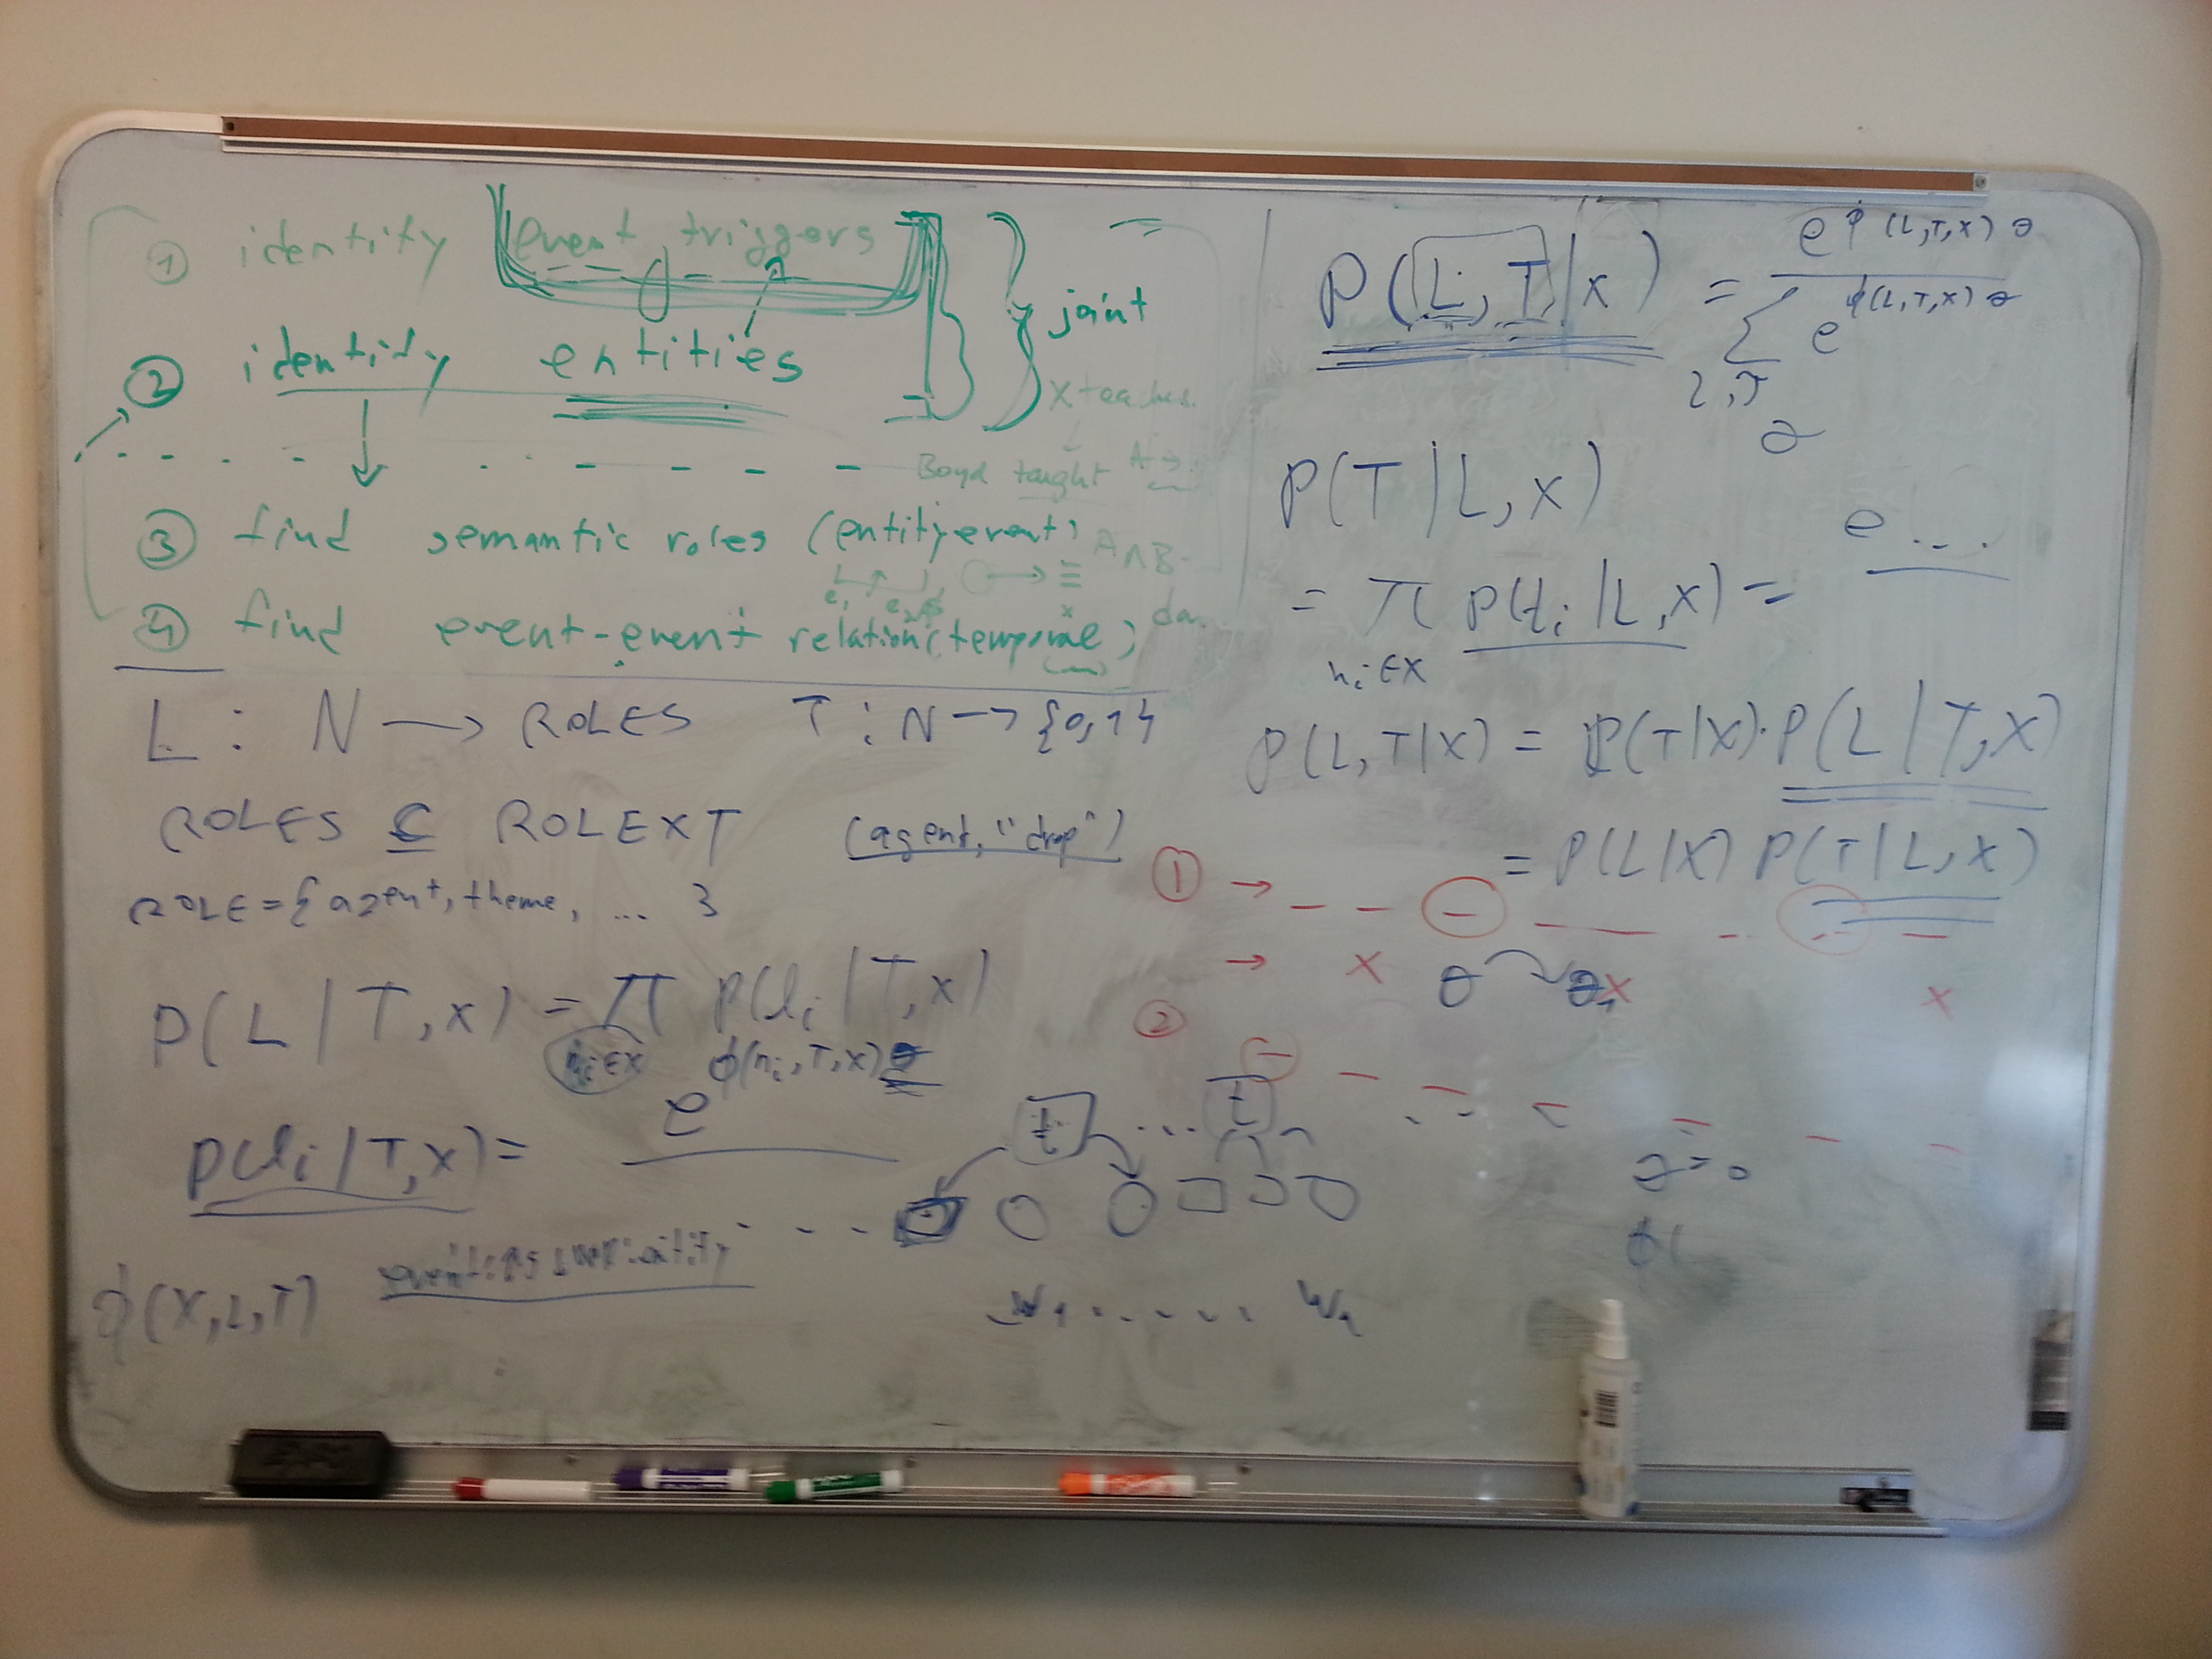 ① identity event triggers
② identity entities
joint
X teaches
Boyd taught A →
③ find semantic roles (entity event)
A ∧ B
④ find event-event relation (temporal)
L : N → ROLES T : N → {0,1}
ROLES ⊆ ROLE X T (agent, "drop")
ROLE = {agent, theme, ... }
P(L | T, x) = π p(l_i | T, x)
n_i ∈ x
p(l_i | T, x) = e^{ϕ(n_i, T, x) θ}
ϕ(X, L, T)
t ... t
w_1 . . . . . w_n
P(L, T | x) = e^{ϕ(L,T,x) θ}
Σ e^{ϕ(L,T,x) θ}
L, T
θ
P(T | L, x)
= π p(t_i | L, x) = e ...
n_i ∈ x
P(L, T | X) = P(T | X) · P(L | T, X)
= P(L | X) P(T | L, X)
① →
→ x θ θ_1 x x
②
θ = 0
ϕ(